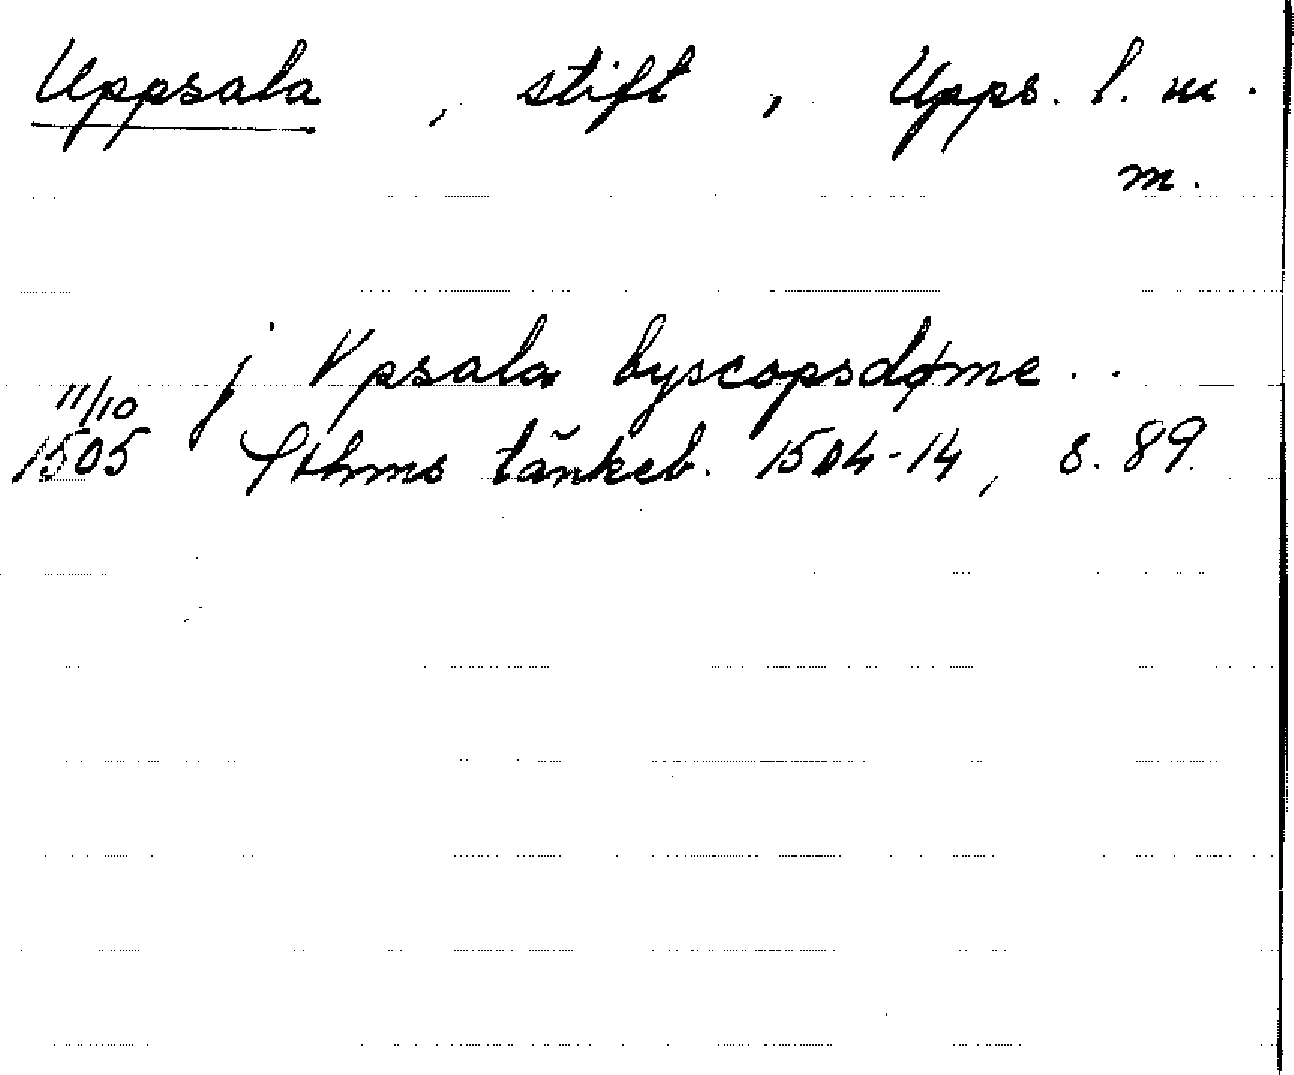 Uppsala , stift , Upps. l. m.
m.
j Vpsala byscopsdøme ..
11/10
1505 Sthms tänkeb. 1504-14, s. 89.